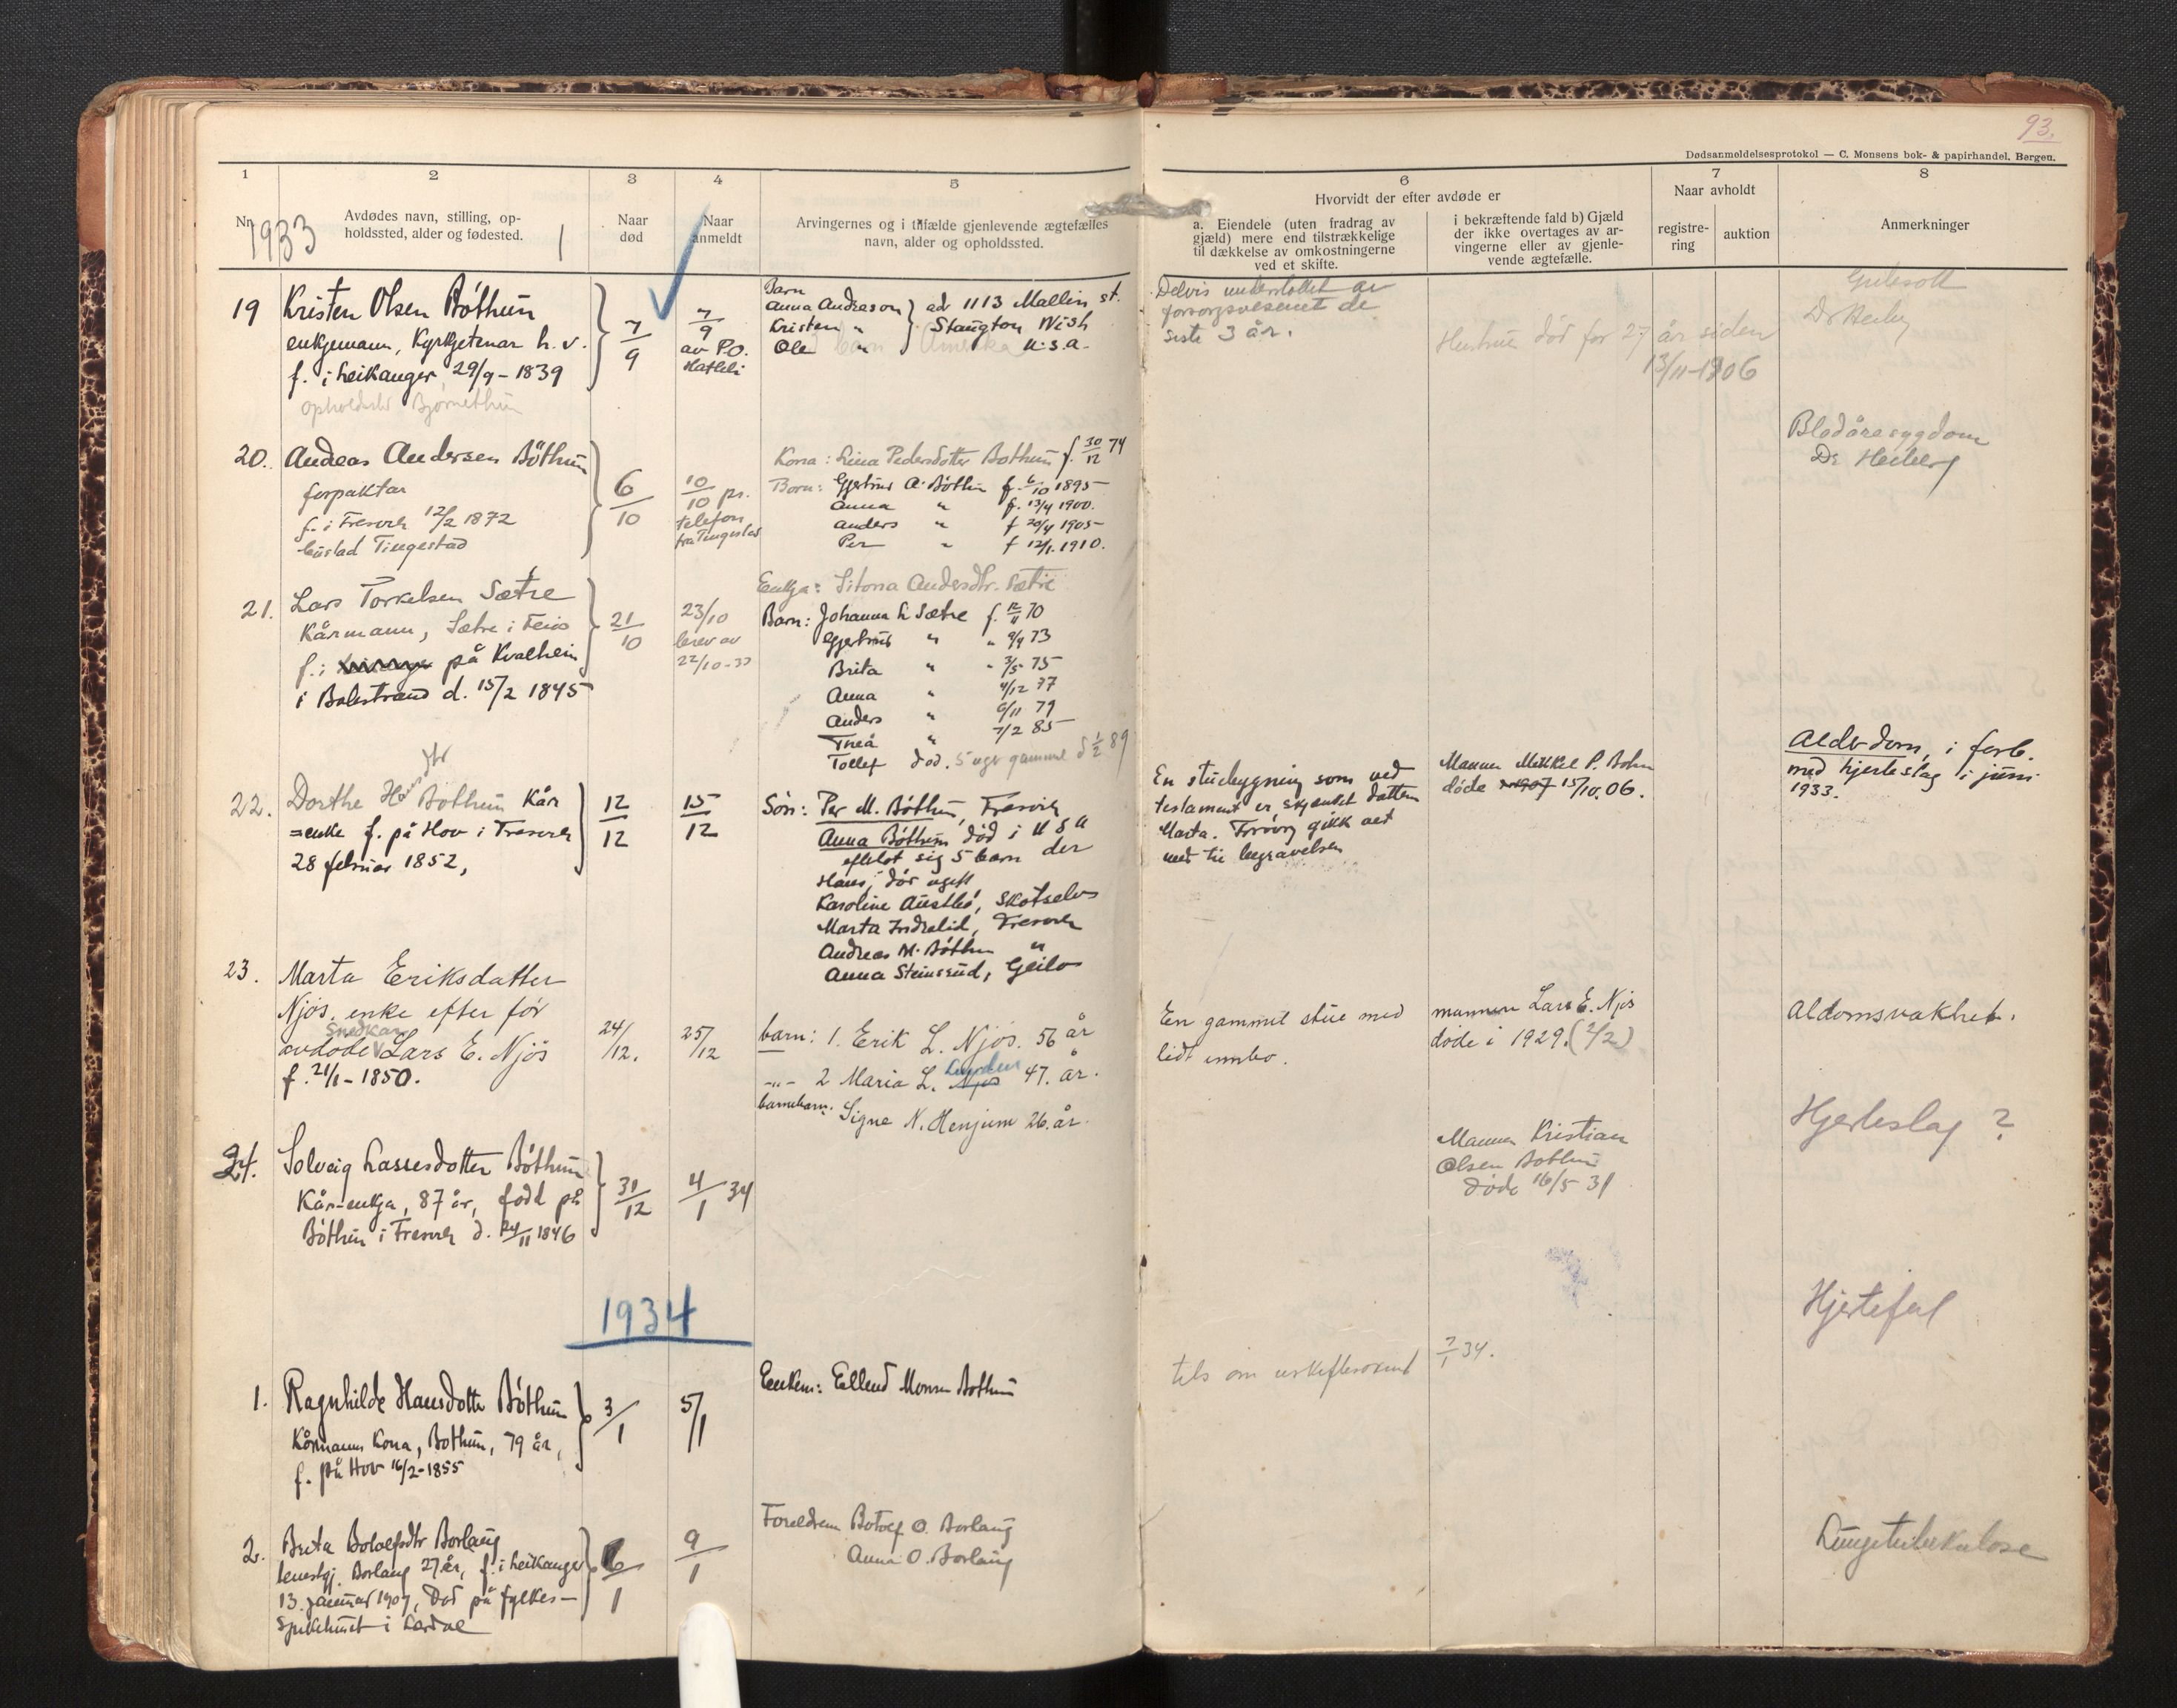 93.
Dødsanmeldelsesprotokol — C. Monsens bok- & papirhandel. Bergen.
1 2 3 4 5 6 7 8
Nr.
1933
Avdødes navn, stilling, op-
holdssted, alder og fødested.
Naar
død
Naar
anmeldt
Arvingernes og i tilfælde gjenlevende ægtefælles
navn, alder og opholdssted.
Hvorvidt der efter avdøde er
a. Eiendele (uten fradrag av
gjæld) mere end tilstrækkelige
til dækkelse av omkostningerne
ved et skifte.
i bekræftende fald b) Gjæld
der ikke overtages av ar-
vingerne eller av gjenle-
vende ægtefælle.
Naar avholdt
registre-
ring
auktion
Anmerkninger
19 Kristen Olsen Bøthun
enkjemann, Kyrkjetenar h. v.
f. i Leikanger 29/9 - 1839
7/9
7/9
av P.O.
Hatleli
Barn
Anna Andreason
Kristen "
Ole "
adr 1113 Mallin st.
Staugton Wish
U.S.A.
Delvis understøttet av
forsorgsvesenet de
siste 3 år.
Hustrue død for 27 år siden
13/11-1906
Gulesott
Dr Heiberg
20. Andreas Andersen Bøthun
forpaktar
f. i Fresvik 12/2 1872
bustad Tingestad
6/10
10/10 pr.
telefon
fra Tingestad
Kona: Lina Pedersdotter Bothun f. 30/12 74
Born: Gjertrud A. Bøthun f. 6/10 1895
Anna " f. 13/4 1900.
Anders " f 20/4 1905
Per " f 12/1. 1910.
Blodåresygdom
Dr Heiberg
21. Lars Torkelsen Sætre
Kårmann, Sætre i Feios
f. i på Kvalheim
i Balestrand d. 15/2 1845
21/10
23/10
brev av
22/10-33
Enkja: Andersdtr. Sætre
Barn: Johanna L Sætre f. 12/11 70
Gjertrud " " 9/9 73
Brita " " 3/5 75
Anna " 4/12 77
Anders " 6/11 79
Thea " 7/2 85
Tollef død. 5 uger gammel d 1/2 89
22. Dorthe Hansdtr Bøthun Kår
=enke f. på Hov i Fresvik
28 februar 1852,
12/12
15/12
Søn: Per M. Bøthun, Fresvik
Anna Bøthun død i U S A
efterlot sig 5 barn der
Hans, død ugift
Karoline Austbø, Skotselv
Marta Indrelid, Fresvik
Andreas M. Bøthun "
Anna Steinsrud, Geilo
En stuebygning som ved
testament er skjenket datteren
Marta. Forøvrig gikk alt
med til begravelsen
Mannen Mikkel P. Bøthun
døde 1907 15/10. 06.
Alderdom, i forb.
med hjerteslag i juni
1933.
23. Marta Eriksdatter
Njøs. enke efter før
avdøde Snedkar Lars E. Njøs
f. 21/1 - 1850.
24/12.
25/12
barn: 1. Erik L. Njøs. 56 år
-"- 2 Maria L. Njøs 47. år.
barnebarn: Signe N. Henjum 26. år.
En gammel stue med
lidt innbo.
mannen Lars E. Njøs
døde i 1929. (2/2)
Aldomsvakhet.
24. Solveig Lassesdotter Bøthun
Kår-enkja, 87 år, født på
Bøthun i Fresvik d. 24/11 1846
31/12
4/1 34
Mannen Kristian
Olsen Bøthun
døde 16/5 31
Hjerteslag ?
1934
1. Ragnhilde Hansdotter Bøthun
Kårmanns Kona, Bothun, 79 år,
f. på Hov 16/2-1855
3/1
5/1
Enkem: Ellend Monsen Bøthun
7/1 34.
Hjertefeil
2. Brita Botolfsdtr Borlaug
tenestgj. Borlaug 27 år, f. i Leikanger
13. januar 1907, Død på fylkes-
sjukehuset i Lærdal
6/1
9/1
Foreldrene Botolf O. Borlaug
Anna O. Borlaug
Lungetuberkulose